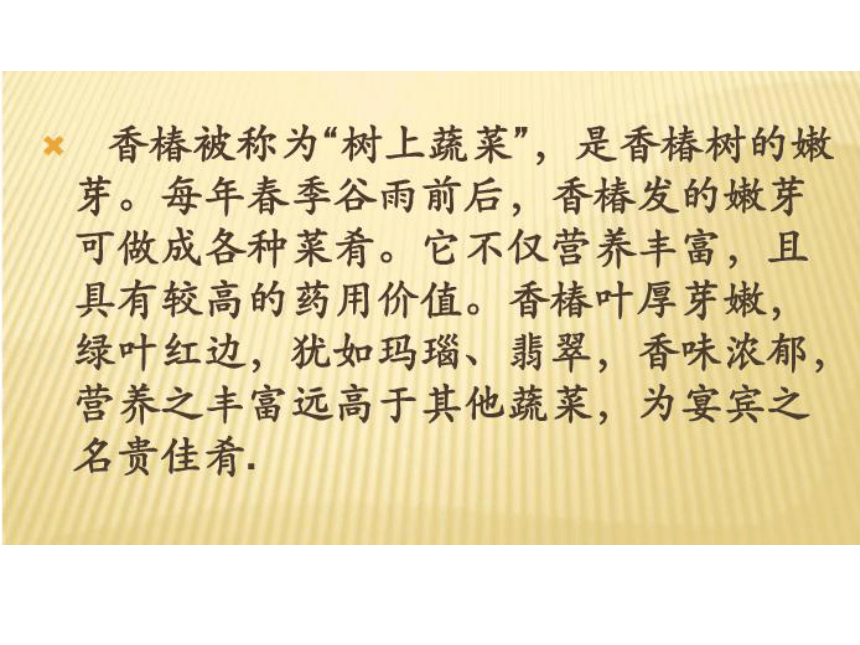 香椿被称为“树上蔬菜”，是香椿树的嫩
芽。每年春季谷雨前后，香椿发的嫩芽
可做成各种菜肴。它不仅营养丰富，且
具有较高的药用价值。香椿叶厚芽嫩，
绿叶红边，犹如玛瑙、翡翠，香味浓郁，
营养之丰富远高于其他蔬菜，为宴宾之
名贵佳肴.